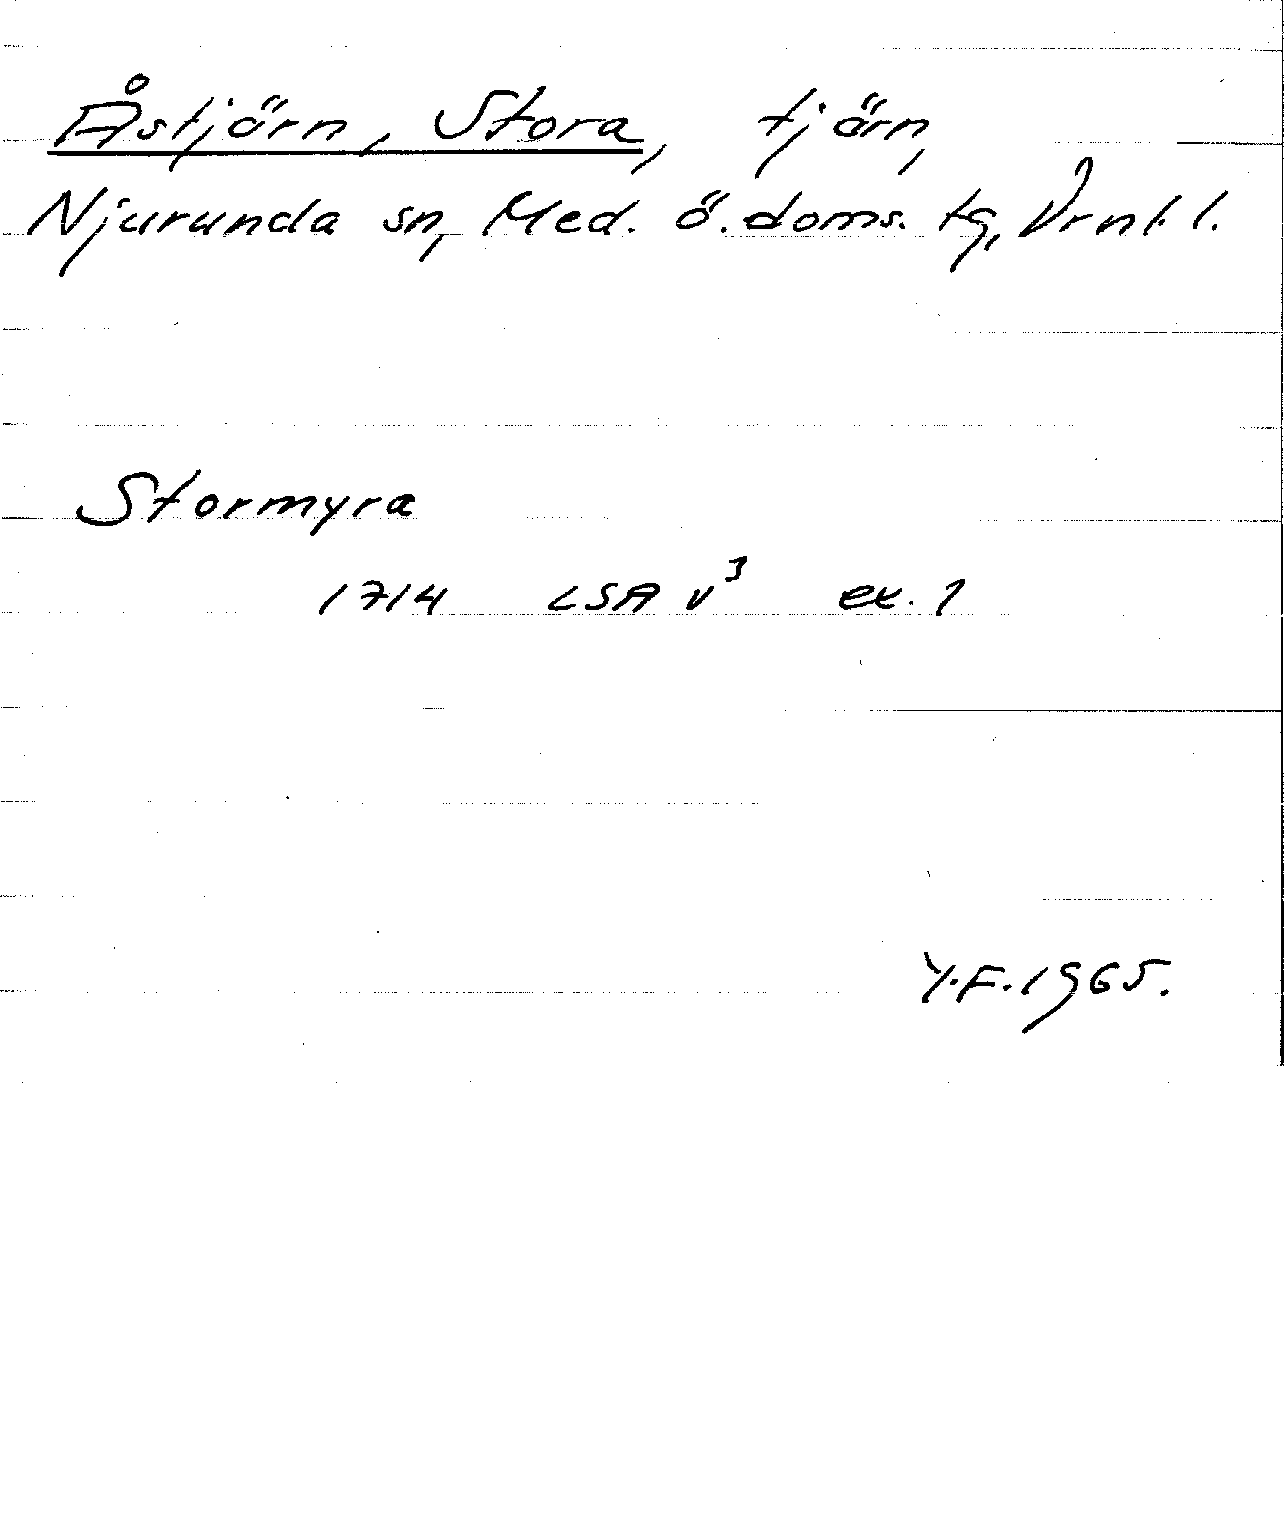 Åstjärn, Stora, tjärn,
Njurunda sn, Med. ö. doms. tg, Vrnl. l.
Stormyra
1714 LSA V³ ex. 1
Y.F. 1965.